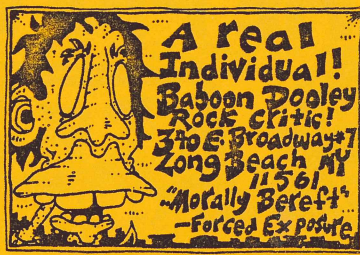 A real
Individual!
Baboon Dooley
Rock Critic!
E. Broadway
Long Beach NY
11561
"Morally Bereft"
—Forced Exposure